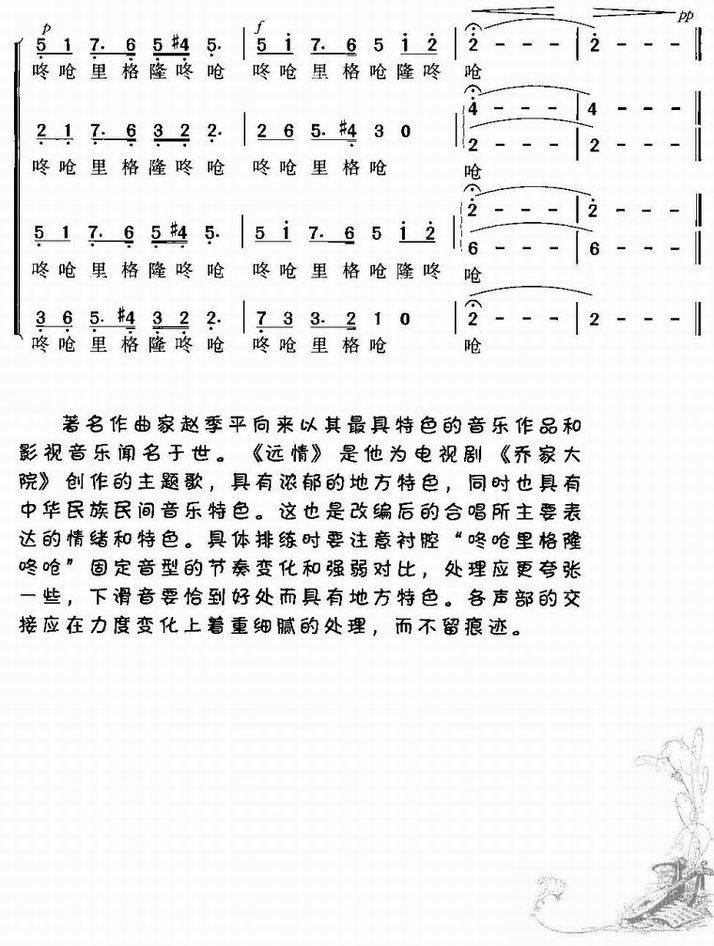 p f pp
5 1 7. 6 5 #4 5. | 5 1 7. 6 5 1 2 | 2 - - - | 2 - - - ‖
咚呛里格隆咚呛 咚呛里格呛隆咚 呛
4 - - - | 4 - - -
2 1 7. 6 3 2 2. | 2 6 5. #4 3 0 | 2 - - - | 2 - - - ‖
咚呛里格隆咚呛 咚呛里格呛 呛
2 - - - | 2 - - -
5 1 7. 6 5 #4 5. | 5 1 7. 6 5 1 2 | 6 - - - | 6 - - - ‖
咚呛里格隆咚呛 咚呛里格呛隆咚 呛
3 6 5. #4 3 2 2. | 7 3 3. 2 1 0 | 2 - - - | 2 - - - ‖
咚呛里格隆咚呛 咚呛里格呛 呛
著名作曲家赵季平向来以其最具特色的音乐作品和
影视音乐闻名于世。《远情》是他为电视剧《乔家大
院》创作的主题歌，具有浓郁的地方特色，同时也具有
中华民族民间音乐特色。这也是改编后的合唱所主要表
达的情绪和特色。具体排练时要注意衬腔“咚呛里格隆
咚呛”固定音型的节奏变化和强弱对比，处理应更夸张
一些，下滑音要恰到好处而具有地方特色。各声部的交
接应在力度变化上着重细腻的处理，而不留痕迹。